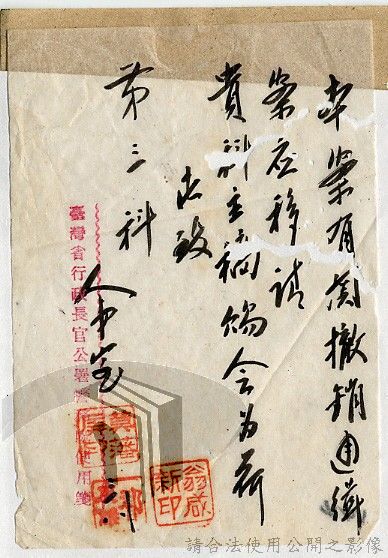 本案有關撤銷通緝
案應移請
貴科主稿飭會為荷
此致
第三科
人事室
臺灣省行政長官公署
使用箋
翁咸新印
請合法使用公開之影像